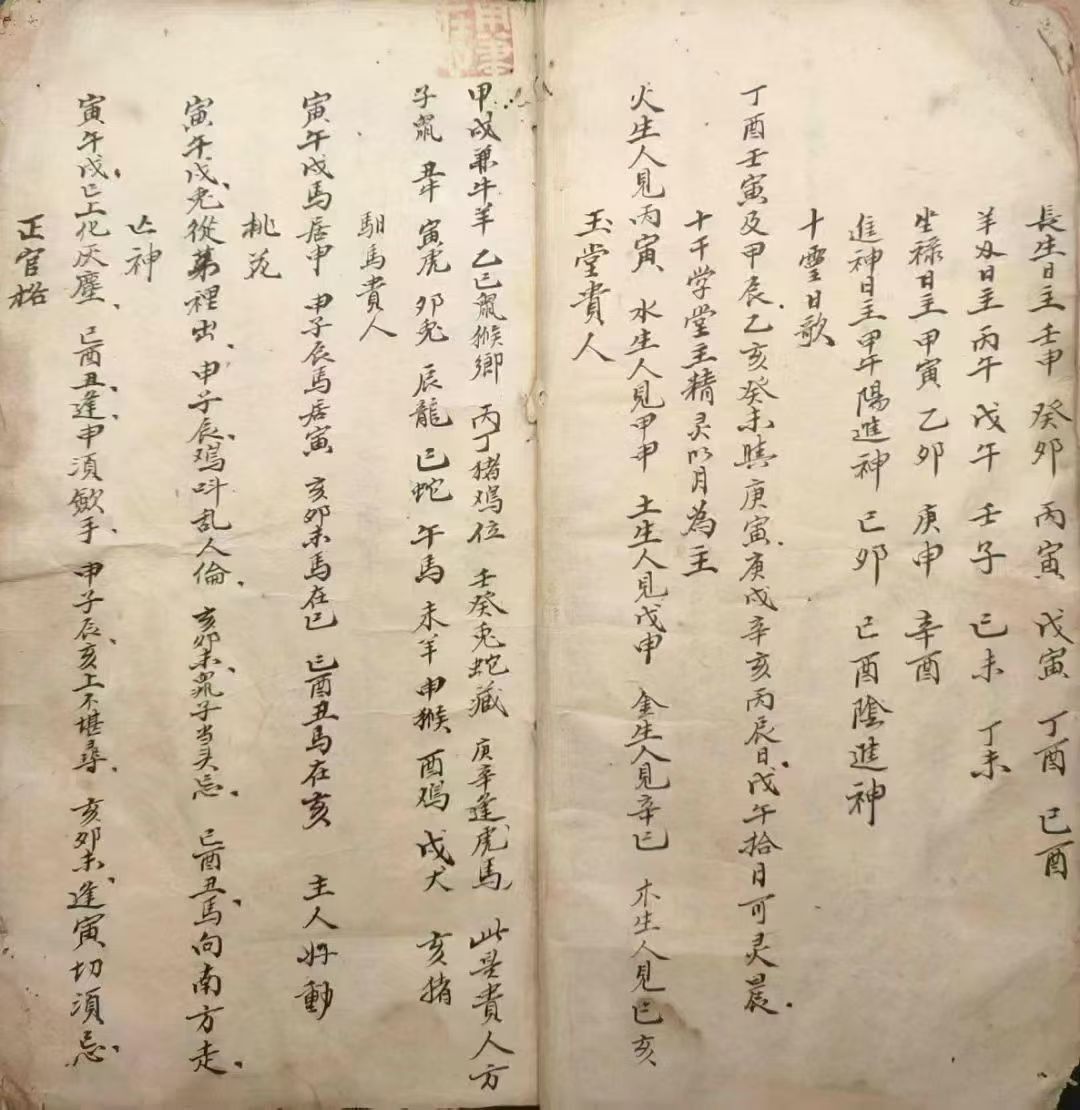 長生日主 壬申 癸卯 丙寅 戊寅 丁酉 己酉
羊刃日主 丙午 戊午 壬子 己未 丁未
坐禄日主 甲寅 乙卯 庚申 辛酉
進神日主 甲午陽進神 己卯 己酉陰進神
十靈日歌
丁酉壬寅及甲辰、乙亥癸未與庚寅、庚戌辛亥丙辰日、戊午拾日可灵晨、
十干学堂主精灵以月為主
火生人見丙寅 水生人見甲申 土生人見戊申 金生人見辛巳 木生人見己亥
玉堂貴人
甲戊兼牛羊 乙己鼠猴鄉 丙丁猪鸡位 壬癸兎蛇藏 庚辛逢虎馬 此是貴人方
子鼠 丑牛 寅虎 卯兎 辰龍 巳蛇 午馬 未羊 申猴 酉鸡 戌犬 亥猪
馹馬貴人
寅午戌馬居申 申子辰馬居寅 亥卯未馬在巳 巳酉丑馬在亥 主人好動
桃花
寅午戌、兎從茅裡出、申子辰、鸡叫乱人倫、亥卯未、鼠子当头忌、巳酉丑、馬向南方走、
亡神
寅午戌、巳上化灰塵、巳酉丑、逢申須斂手、申子辰、亥上不堪尋、亥卯未、逢寅切須忌、
正官格